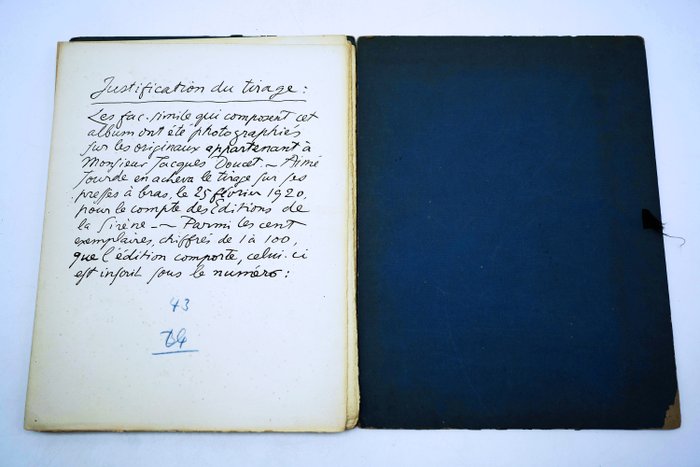 Justification du tirage :
Les fac-simile qui composent cet
album ont été photographiés
sur les originaux appartenant à
Monsieur Jacques Doucet. ~ Aimé
Jourde en acheva le tirage sur ses
presses à bras, le 25 février 1920,
pour le compte des Éditions de
la Sirène. ~ Parmi les cent
exemplaires, chiffrés de 1 à 100,
que l'édition comporte, celui-ci
est inscrit sous le numéro :
43